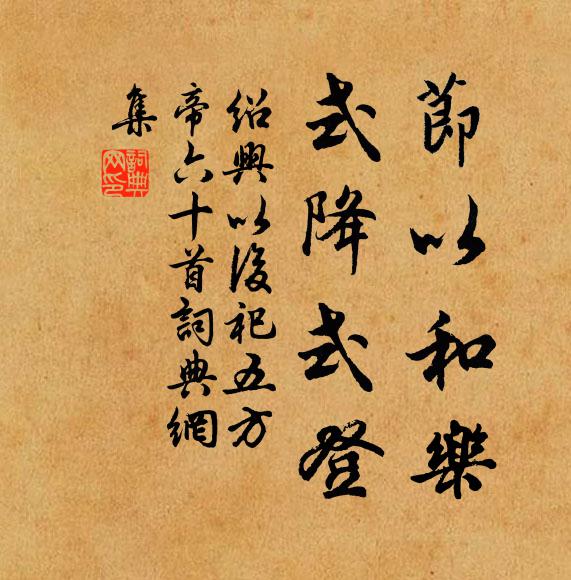 節以和樂
式降式登
紹興以後祀五方
帝六十首詞典網
集
詞典
网印